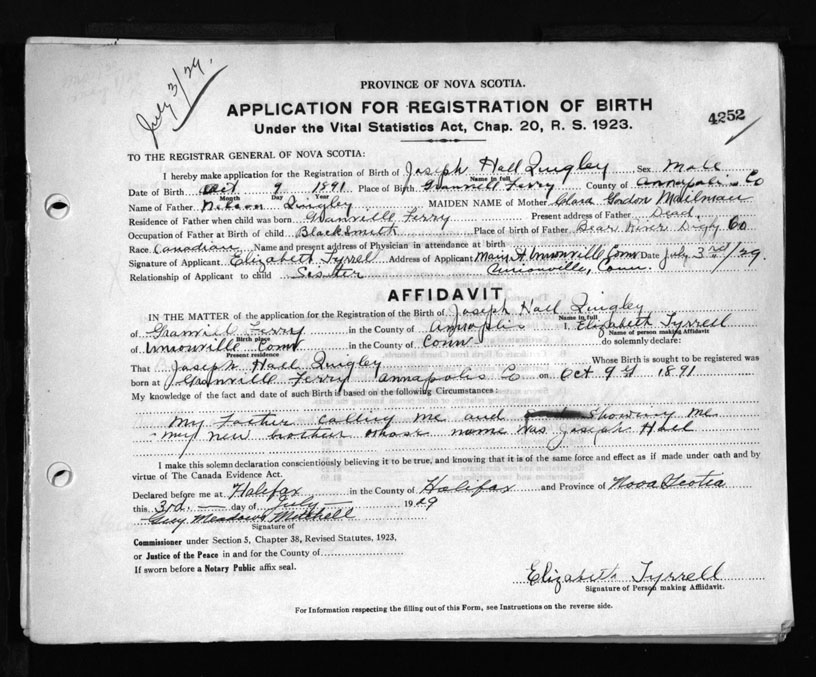 July 3/29.
PROVINCE OF NOVA SCOTIA.
APPLICATION FOR REGISTRATION OF BIRTH
4252
Under the Vital Statistics Act, Chap. 20, R. S. 1923.
TO THE REGISTRAR GENERAL OF NOVA SCOTIA:
I hereby make application for the Registration of Birth of Joseph Hall Quigley Sex Male
Name in full
Date of Birth Oct 9 1891 Place of Birth Granvill Ferry County of Annapolis Co
Month Day Year
Name of Father Nelson Quigley MAIDEN NAME of Mother Clara Gordon
Residence of Father when child was born Granville Ferry Present address of Father Dead
Occupation of Father at Birth of child Blacksmith Place of birth of Father Bear River Digby Co
Race Canadian Name and present address of Physician in attendance at birth
Signature of Applicant Elizabeth Tyrrell Address of Applicant Main St. Unionville Conn Date July 3rd/29.
Relationship of Applicant to child Sister Unionville, Conn.
AFFIDAVIT
IN THE MATTER of the application for the Registration of the Birth of Joseph Hall Quigley
Name in full
of Granvill Ferry in the County of I, Elizabeth Tyrrell
Birth place Name of person making Affidavit
of Unionville Conn in the County of Conn do solemnly declare:
Present residence
That Joseph Hall Quigley Whose Birth is sought to be registered was
born at Granville Ferry Annapolis Co on Oct 9th 1891
My knowledge of the fact and date of such Birth if based on the following Circumstances:
My Father calling me and showing me
my new brother whose name was Joseph Hall
I make this solemn declaration conscientiously believing it to be true, and knowing that it is of the same force and effect as if made under oath and by
virtue of The Canada Evidence Act.
Declared before me at Halifax in the County of Halifax and Province of Nova Scotia
this 3rd. day of July 1929
Guy Meadows Mitchell
Signature of
Commissioner under Section 5, Chapter 38, Revised Statutes, 1923,
or Justice of the Peace in and for the County of
If sworn before a Notary Public affix seal.
Elizabeth Tyrrell
Signature of Person making Affidavit.
For Information respecting the filling out of this Form, see Instructions on the reverse side.